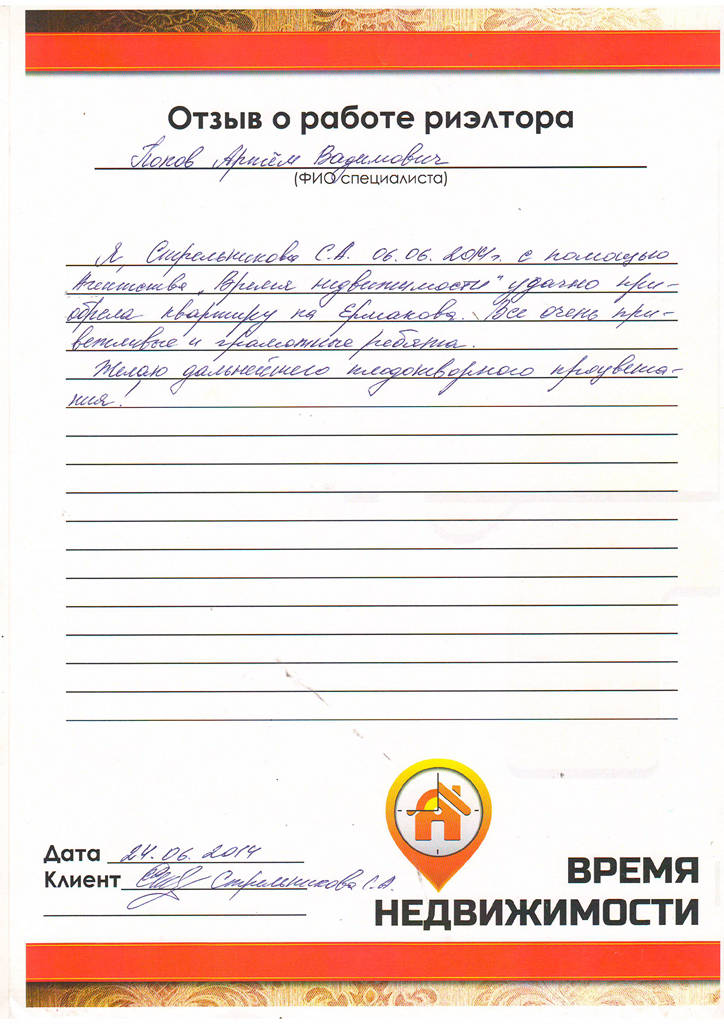 Отзыв о работе риэлтора
Попов Артём Вадимович
(ФИО специалиста)
Я, Стрельникова С.А. 06.06.2014г. с помощью
Агентства „Время недвижимости" удачно при-
обрела квартиру на Ермакова. Все очень при-
ветливые и грамотные ребята.
Желаю дальнейшего плодотворного процвета-
ния!
Дата 24.06.2014
Клиент Стрельникова С.А.
ВРЕМЯ
НЕДВИЖИМОСТИ